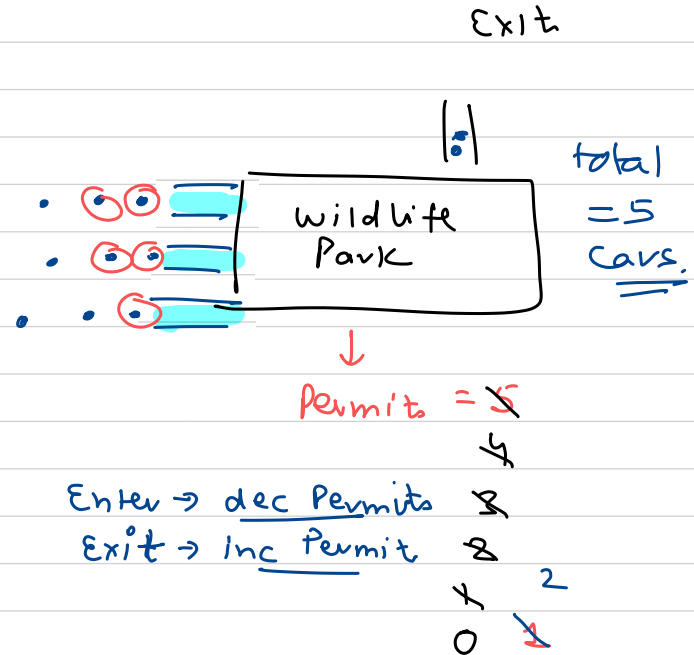 Exit
total
= 5
Cars.
Wildlife
Park
Permits = 5
4
Enter → dec Permits 3
Exit → inc Permit 2
1 2
0 1